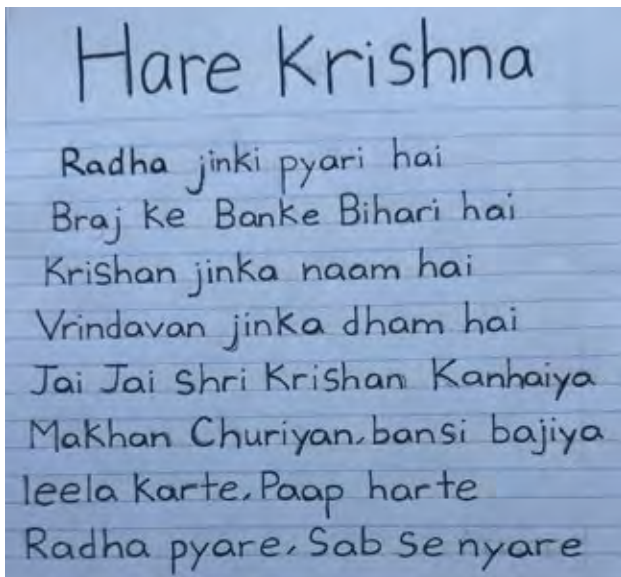 Hare Krishna
Radha jinki pyari hai
Braj ke Banke Bihari hai
Krishan jinka naam hai
Vrindavan jinka dham hai
Jai Jai Shri Krishan Kanhaiya
Makhan Churiyan, bansi bajiya
leela karte, Paap harte
Radha pyare, Sab se nyare